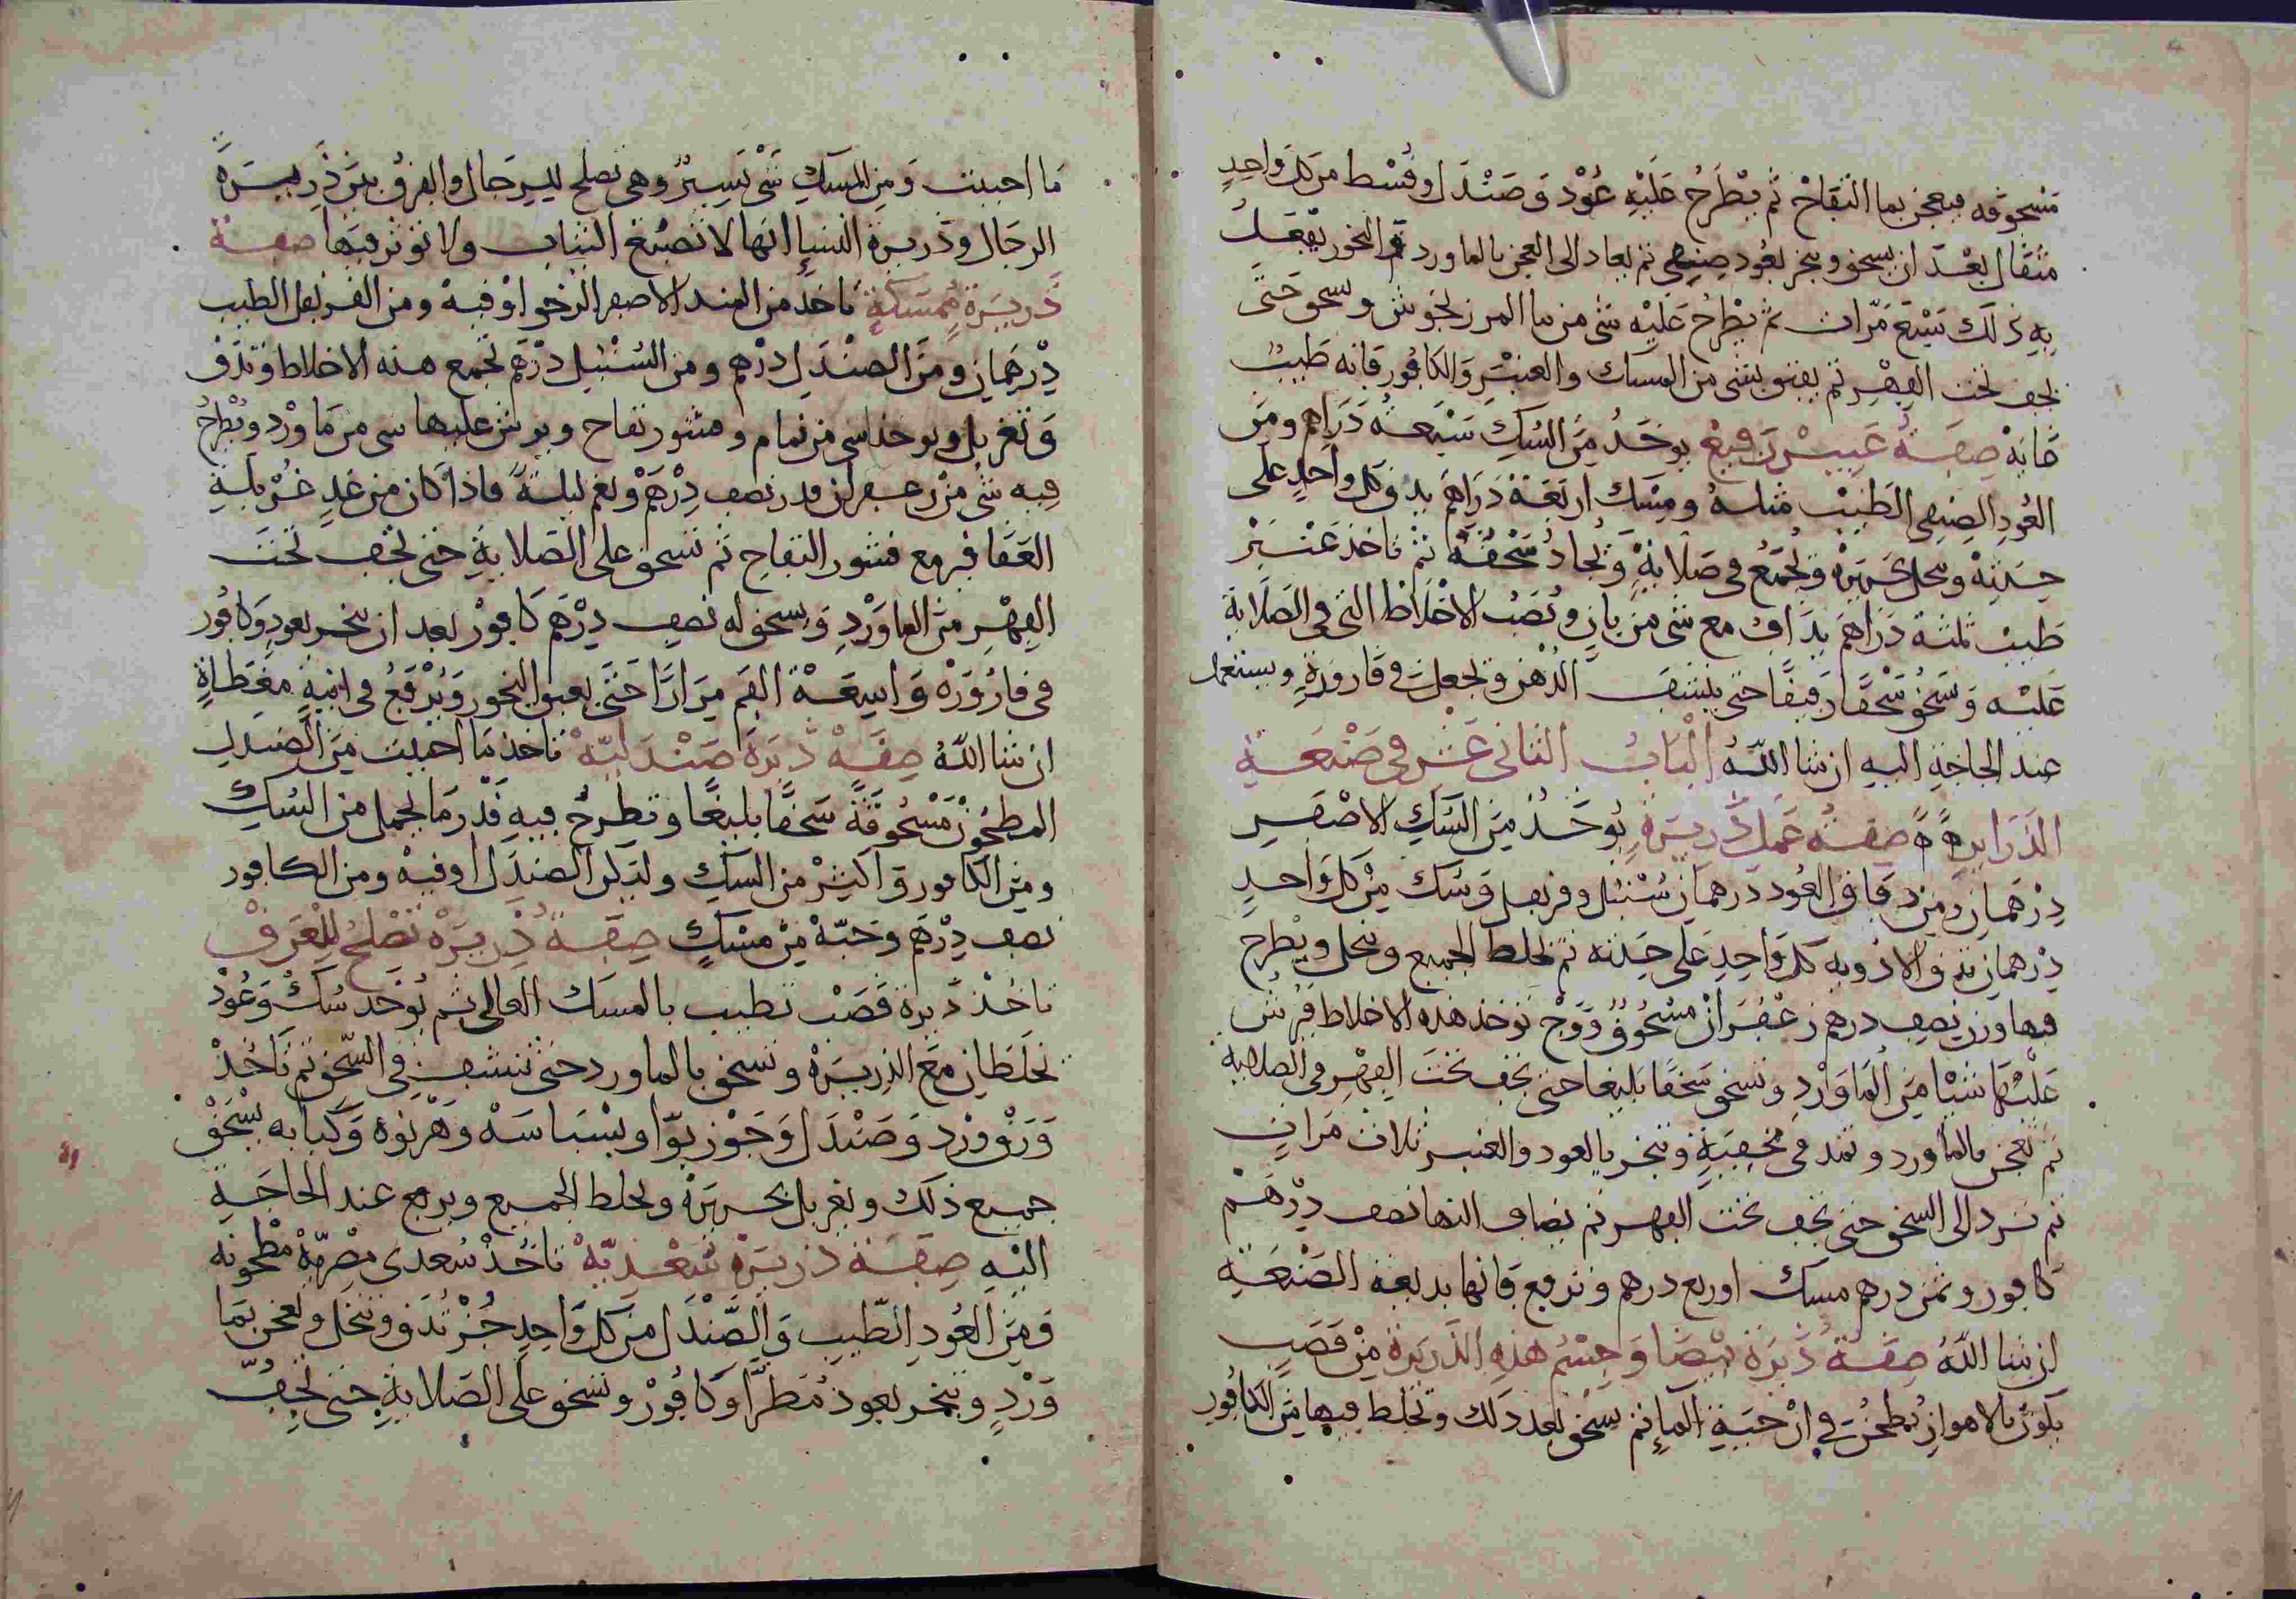 مسحوقه فيعجن بما التفاح ثم يطرح عليه عُود وصندل وقسط من كل واحدٍ
مثقال بعد ان يسحق ويبخر بعود صنفى ثم يعاد الى العجن بالماورد ثم البخور يفعل
به ذلك سبع مرّات ثم يطرح عليه شى من ما المرزنجوش وسحق حتى
يجف تحت الفهر ثم يفتق بشى من المسك والعنبر والكافور فانه طيبٌ
غايه صفة عبير رفيع يوخذ من السك سبعة دراهم ومن
العود الصنفى الطيب مثله ومسك اربعة دراهم يدق كل واحدٍ على
حدته وينخل بحريره وتجمع فى صلاية ويجاد سحقه ثم تاخذ عنبر
طيب ثلثة دراهم يداف مع شى من بان وتصب الاخلاط التى فى الصلاية
عليه وتسحق سحقا رفيقا حتى ينشف الدهن وتجعل فى قارورةٍ ويستعمل
عند الحاجة اليه ان شا اللّه الباب الثانى عشر فى صنعة
الذراير صفة عمل ذريرة يوخذ من السك الاصفر
درهمان ومن دقاق العود درهمان سنبل وقرنفل وسك من كل واحدٍ
درهمان تدق الادويه كل واحدٍ على حدته ثم تخلط الجميع وينخل ويطرح
فيها وزن نصف درهم زعفران مسحوق ووج توخذ هذه الاخلاط فيرش
عليها شيا من الماورد وتسحق سحقا بليغا حتى يجف تحت الفهر فى الصلايه
ثم تعجن بالماورد وتمد فى وتبخر بالعود والعنبر ثلاث مرات
ثم ترد الى السحق حتى يجف تحت الفهر ثم يضاف اليها نصف درهم
كافور وثمن درهم مسك اوربع درهم وترفع فانها بديعة الصنعة
ان شا اللّه صفة ذريرة بيضا وجسم هذه الذريرة من قصبٍ
يكون بالاهواز يطحن فى ارحية الما ثم يسحق بعد ذلك وتخلط فيها من الكافور
ما احببت ومن المسك شى يسير وهى تصلح للرجال والفرق بين ذريرة
الرجال وذريرة النسا انها لا تصبغ الثياب ولا توثر فيها صفة
ذريرة ممسكة تاخذ من الاصفر الرخو اوقية ومن القرنفل الطيب
درهمان ومن الصندل درهم ومن السنبل درهم تجمع هذه الاخلاط وتدق
وتغربل ويوخذ شى من نمام وقشور تفاح ويرش عليها شى من ماورد ويطرح
فيه شى من زعفران قدر نصف درهم ويغم ليلة فاذا كان من غدٍ غربلة
العقاقير مع قشور التفاح ثم تسحق على الصلاية حتى تجف تحت
الفهر من الماورد ويسحق له نصف درهم كافور بعد ان يبخر بعود وكافور
فى قارورة واسعة الفم مرارا حتى يعبق البخور ويرفع فى انية مغطاة
ان شا اللّه صفة ذريرة صندلية تاخذ ما احببت من الصندل
المطحون مسحوقة سحقا بليغا ويطرح فيه قدر ما يحمل من السك
ومن الكافور واكثر من السك وليكن الصندل اوقية ومن الكافور
نصف درهم وحبة من مسك صفة ذريرة تصلح للعرق
تاخذ ذريرة قصب تطيب بالمسك العالى ثم يوخذ سك وعود
تخلطان مع الذريرة وتسحق بالماورد حتى تنشف فى السحق ثم تاخذ
ورق ورد وصندل وجوز بوّا وبسباسه وهرنوه وكبابه يسحق
جميع ذلك ويغربل بحريرة ويخلط الجميع ويرفع عند الحاجة
اليه صفة ذريرة سعدية تاخذ سعدى مصرية مطحونه
ومن العود الطيب والصندل من كل واحدٍ جزء تدق وتنخل وتعجن بما
وردٍ وتبخر بعود مطرّا وكافور وتسحق على الصلاية حتى تجف